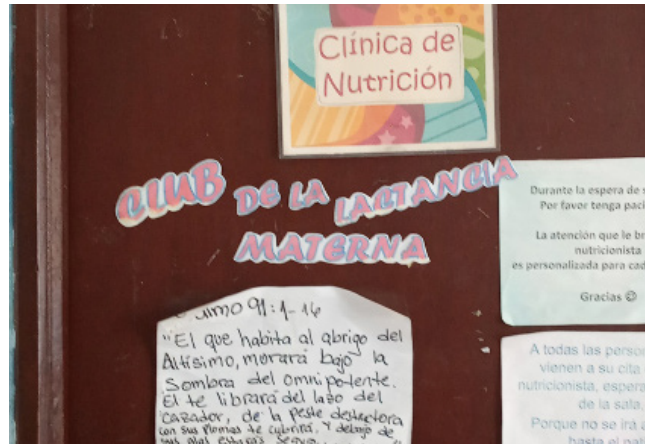 Clínica de
Nutrición
CLUB DE LA LACTANCIA
MATERNA
Durante la espera de
Por favor tenga
La atención que le
nutricionista
es personalizada para
Gracias ☺
91:1-16
"El que habita al abrigo del
Altísimo, morará bajo la
Sombra del omnipotente.
El te librará del lazo del
cazador, de la peste destructora
con sus plumas te cubrirá, y debajo de
sus alas
A todas las
vienen a su cita
nutricionista,
de la sala,
Porque no se irá
hasta el